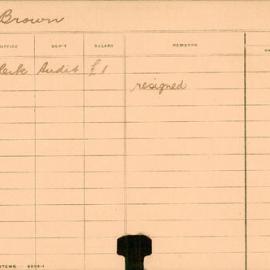 Brown
OFFICE DEP'T SALARY REMARKS
Clerk Audit £1
resigned